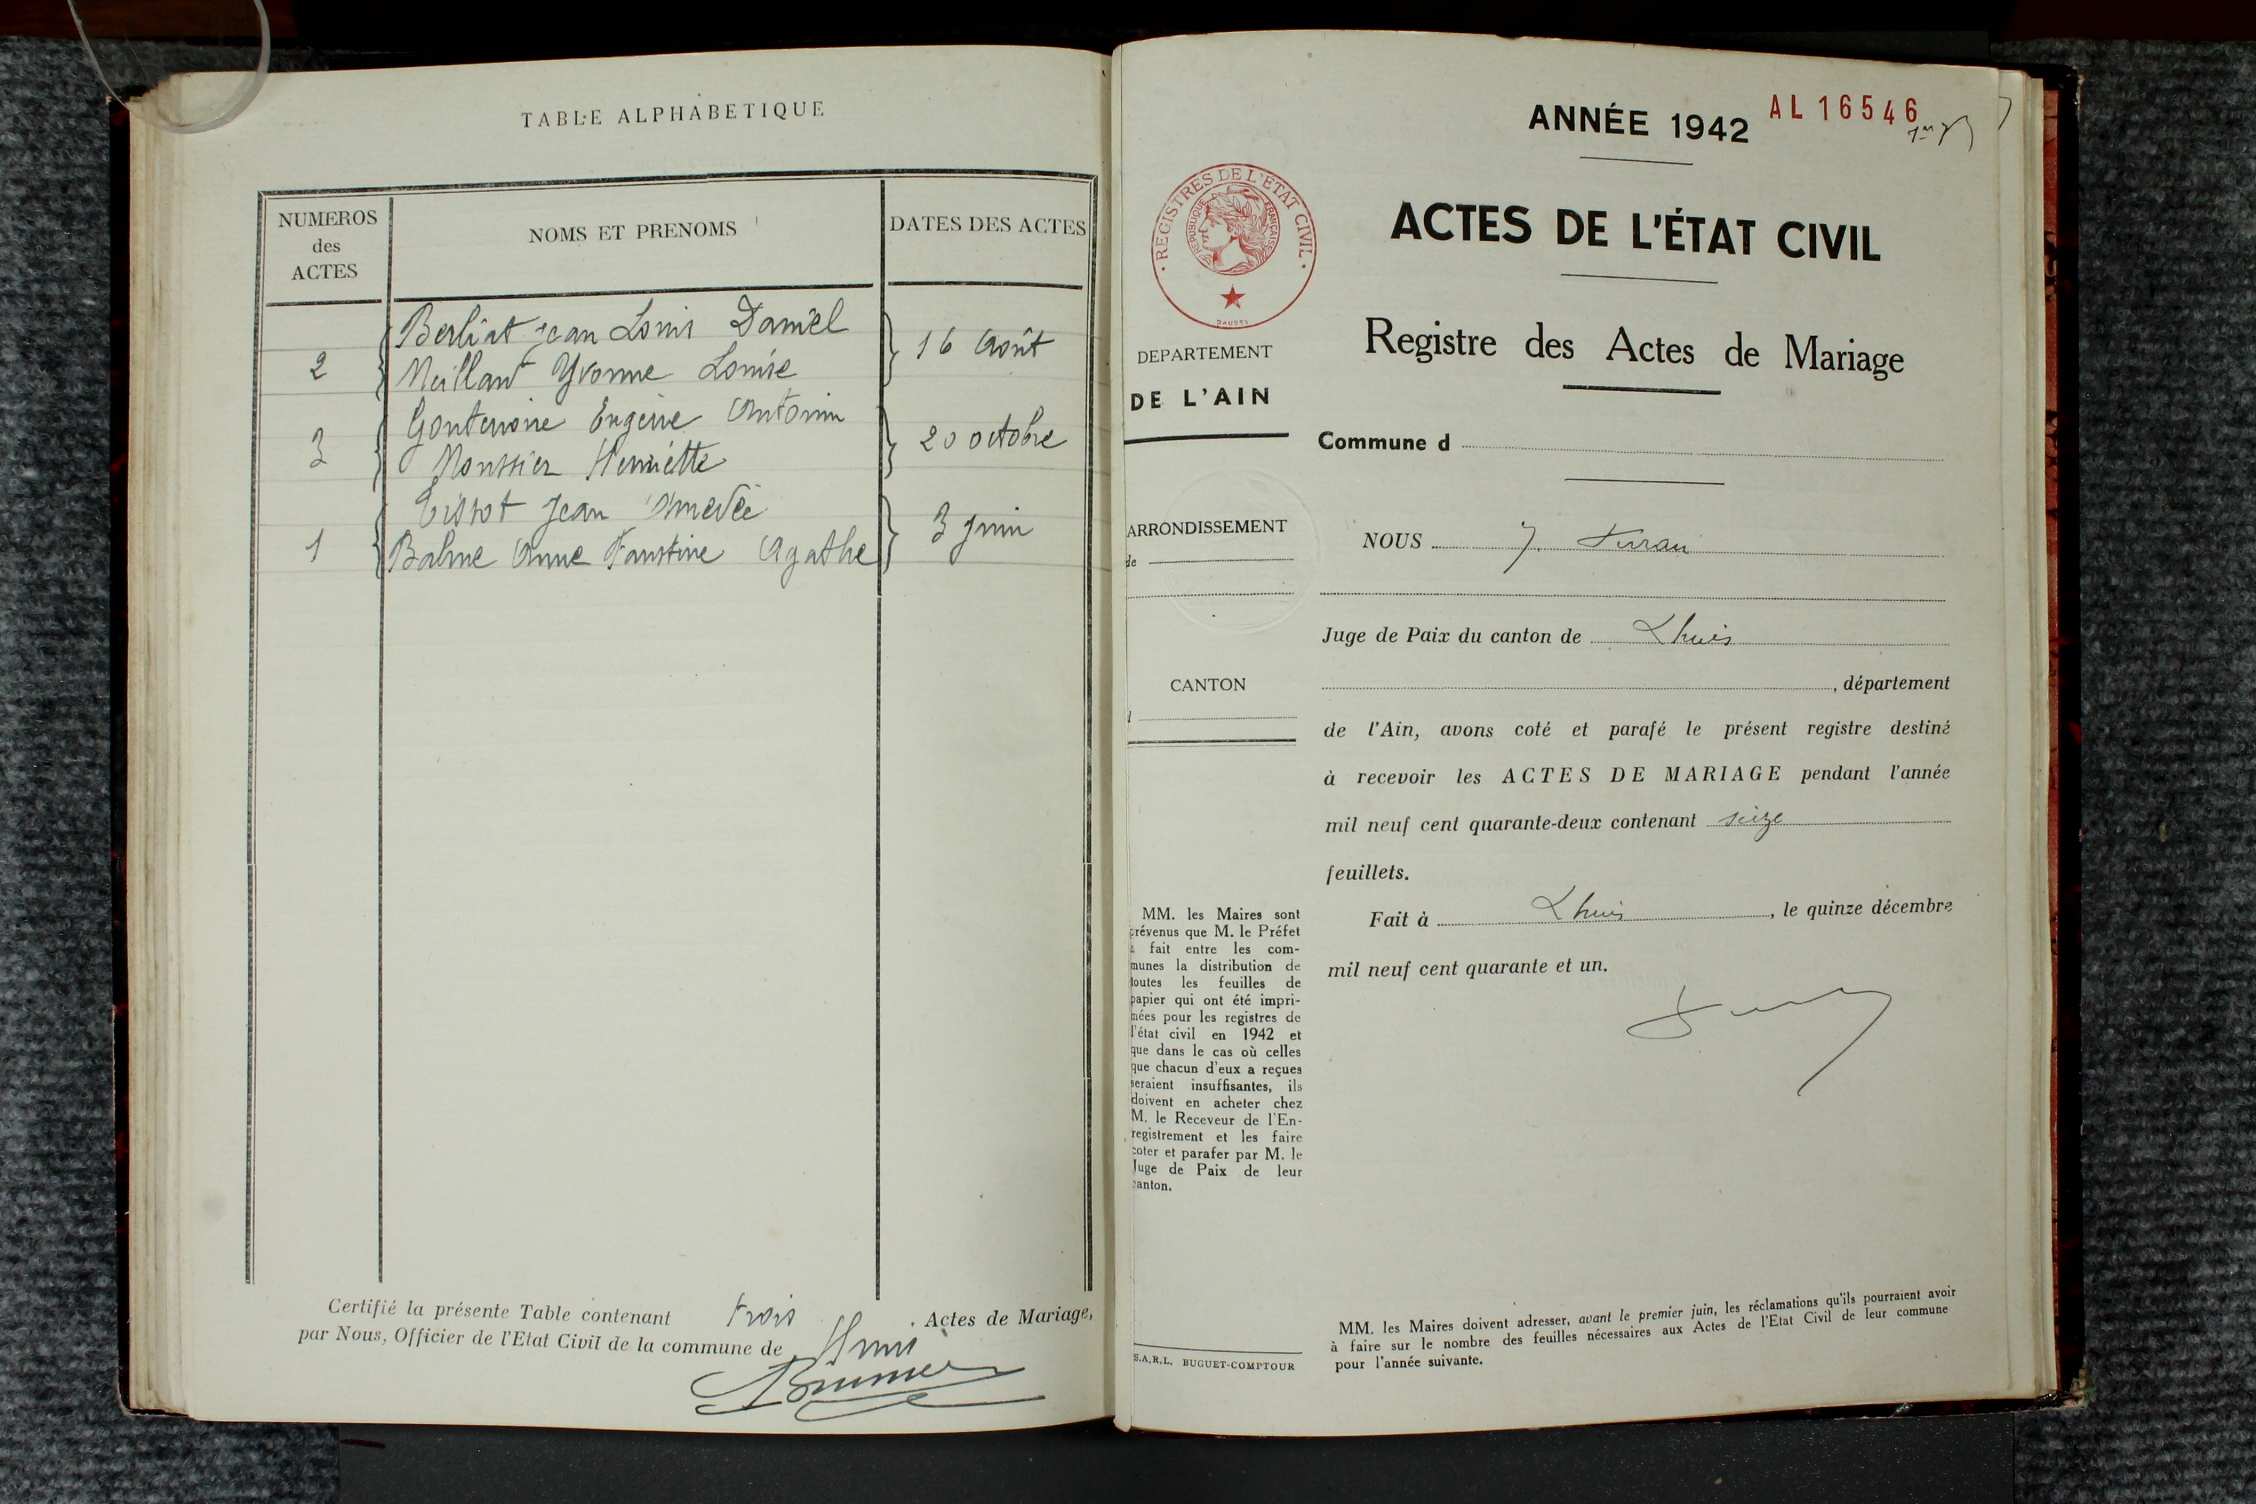 TABLE ALPHABETIQUE
NUMEROS
des
ACTES
NOMS ET PRENOMS
DATES DES ACTES
Berliat Jean Louis Daniel
2
Meilland Yvonne Louise
16 Août
Gontenoire Eugène Antonin
3
Moussier Henriette
20 octobre
Tissot Jean Amedée
1
Balme Anne Faustine Agathe
3 Juin
Certifié la présente Table contenant trois Actes de Mariage,
par Nous, Officier de l'Etat Civil de la commune de
Brunier
ANNÉE 1942
AL 16546
REGISTRES DE L'ETAT CIVIL
REPUBLIQUE FRANÇAISE
DEPARTEMENT
DE L'AIN
ARRONDISSEMENT
de
CANTON
d
MM. les Maires sont
prévenus que M. le Préfet
a fait entre les com-
munes la distribution de
toutes les feuilles de
papier qui ont été impri-
mées pour les registres de
l'état civil en 1942 et
que dans le cas où celles
que chacun d'eux a reçues
seraient insuffisantes, ils
doivent en acheter chez
M. le Receveur de l'En-
registrement et les faire
coter et parafer par M. le
Juge de Paix de leur
canton.
S.A.R.L. BUGUET-COMPTOUR
ACTES DE L'ÉTAT CIVIL
Registre des Actes de Mariage
Commune d
NOUS J.
Juge de Paix du canton de Lhuis
, département
de l'Ain, avons coté et parafé le présent registre destiné
à recevoir les ACTES DE MARIAGE pendant l'année
mil neuf cent quarante-deux contenant seize
feuillets.
Fait à Lhuis, le quinze décembre
mil neuf cent quarante et un.
MM. les Maires doivent adresser, avant le premier juin, les réclamations qu'ils pourraient avoir
à faire sur le nombre des feuilles nécessaires aux Actes de l'Etat Civil de leur commune
pour l'année suivante.